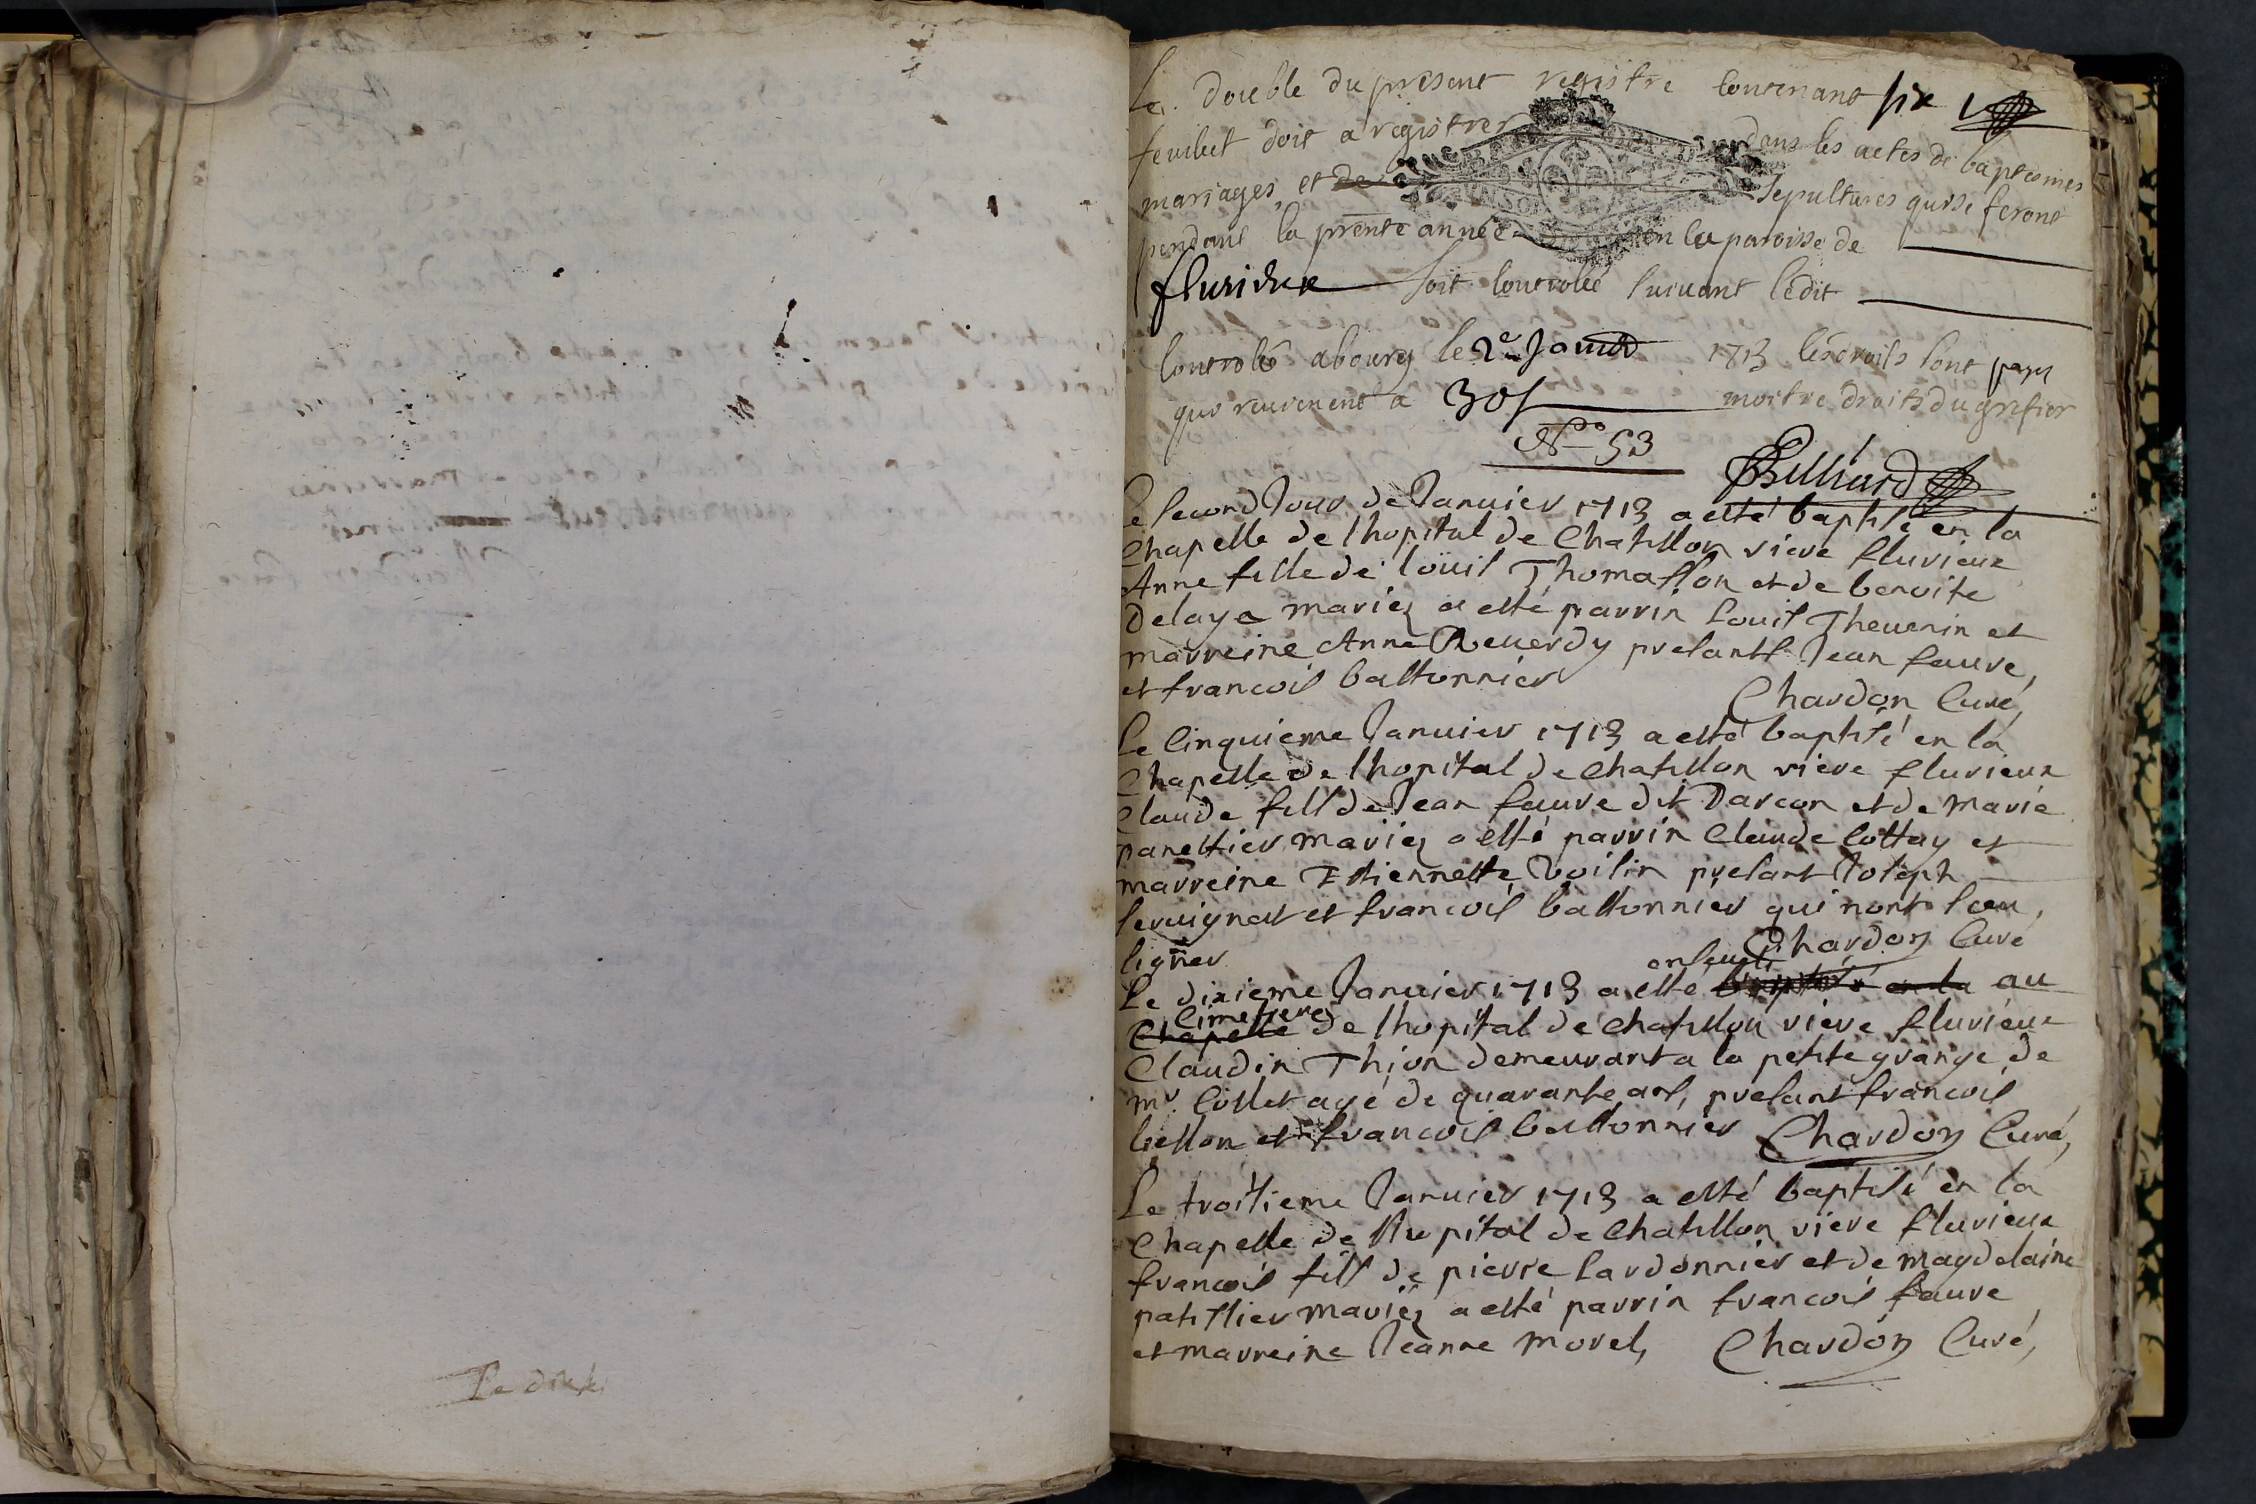 Le double du present registre contenant six
feuillet doit a registrer dans les actes de baptesmes
mariages, et de sepultures qui se feront
pendant la pnte année en la paroisse de
fluvieux soit controllé suivant l'edit
Controllé a bourg le 2e Janvier 1713 les droits sont payez
qui reviennent a 30s moitre droits du grefier
No 53
Billiard
Le second Jour de Janvier 1713 a esté baptisé en la
Chapelle de lhopital de Chatillon rieve fluvieux
Anne fille de loüis Thomasson et de benoite
Delaye mariez a esté parrin Louis Thevenin et
marreine Anne Reverdy presants Jean fauve,
et francois bastonnier Chardon Curé,
Le Cinquieme Januier 1713 a esté baptisé en la
Chapelle de lhopital de chatillon rieve fluvieux
Claude fils de Jean fauve dit Darcon et de marie
panestier mariez a esté parrin Claude Cottay et
marreine Etiennette Voisin presant Joseph
levuignat et francois bastonnier qui nont sceu,
signer Chardon Curé
enseveli
Le dixieme Januier 1713 a esté baptisé en la au
Cimetiere
Chapelle de lhopital de chatillon rieve fluvieux
Claudin Thion demeurant a la petite grange de
mr. Collet agé de quarante ans, presant francois
bellon et francois bastonnier Chardon Curé,
Le troisieme Januier 1713 a esté baptisé en la
Chapelle de lhopital de chatillon rieve fluvieux
francois fils de pierre Lardonnier et de magdelaine
patissier mariez a esté parrin francois fauve
et marreine Jeanne Morel, Chardon Curé,